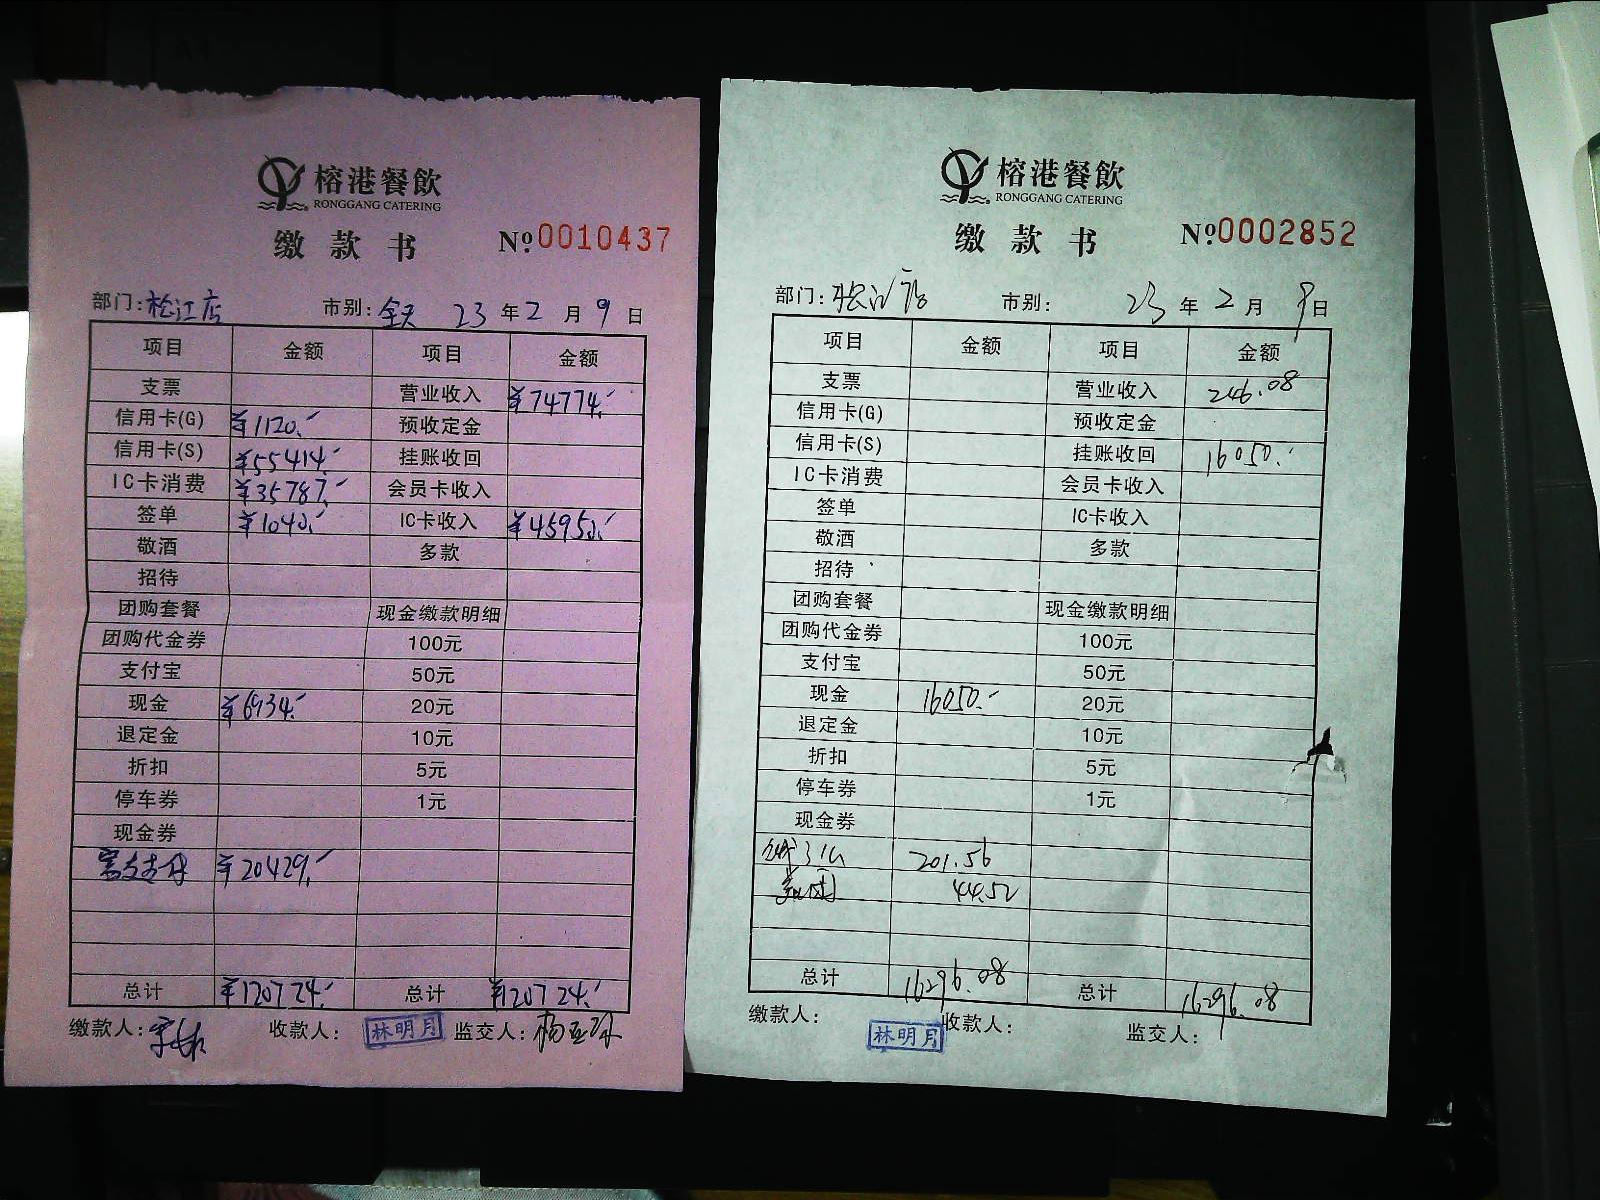 榕港餐飲
RONGGANG CATERING
缴款书 №0010437
部门:松江店 市别:全天 23年2月9日
项目 金额 项目 金额
支票 营业收入 ¥74774.-
信用卡(G) ¥1120.- 预收定金
信用卡(S) ¥55414.- 挂账收回
IC卡消费 ¥35787.- 会员卡收入
签单 ¥1040.- IC卡收入 ¥45950.-
敬酒 多款
招待
团购套餐 现金缴款明细
团购代金券 100元
支付宝 50元
现金 ¥6934.- 20元
退定金 10元
折扣 5元
停车券 1元
现金券
支付 ¥20429.-
总计 ¥120724.- 总计 ¥120724.-
缴款人: 收款人: 林明月 监交人:
榕港餐飲
RONGGANG CATERING
缴款书 №0002852
部门:松江店 市别: 23年2月9日
项目 金额 项目 金额
支票 营业收入 246.08
信用卡(G) 预收定金
信用卡(S) 挂账收回 16050.-
IC卡消费 会员卡收入
签单 IC卡收入
敬酒 多款
招待
团购套餐 现金缴款明细
团购代金券 100元
支付宝 50元
现金 16050.- 20元
退定金 10元
折扣 5元
停车券 1元
现金券
201.56
美团 44.52
总计 16296.08 总计 16296.08
缴款人: 林明月 收款人: 监交人: